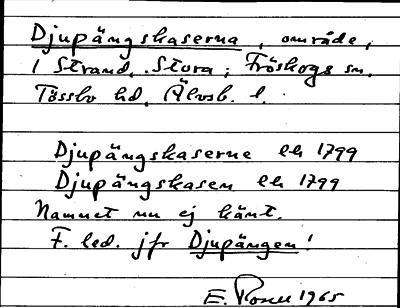 Djupängskaserna, område,
i Strand, Stora; Fröskogs sn.
Tössbo hd, Älvsb. l.
Djupängskaserne LH 1799
Djupängskasen LH 1799
Namnet nu ej känt.
F. led. jfr Djupängen!
E. Rosell 1965